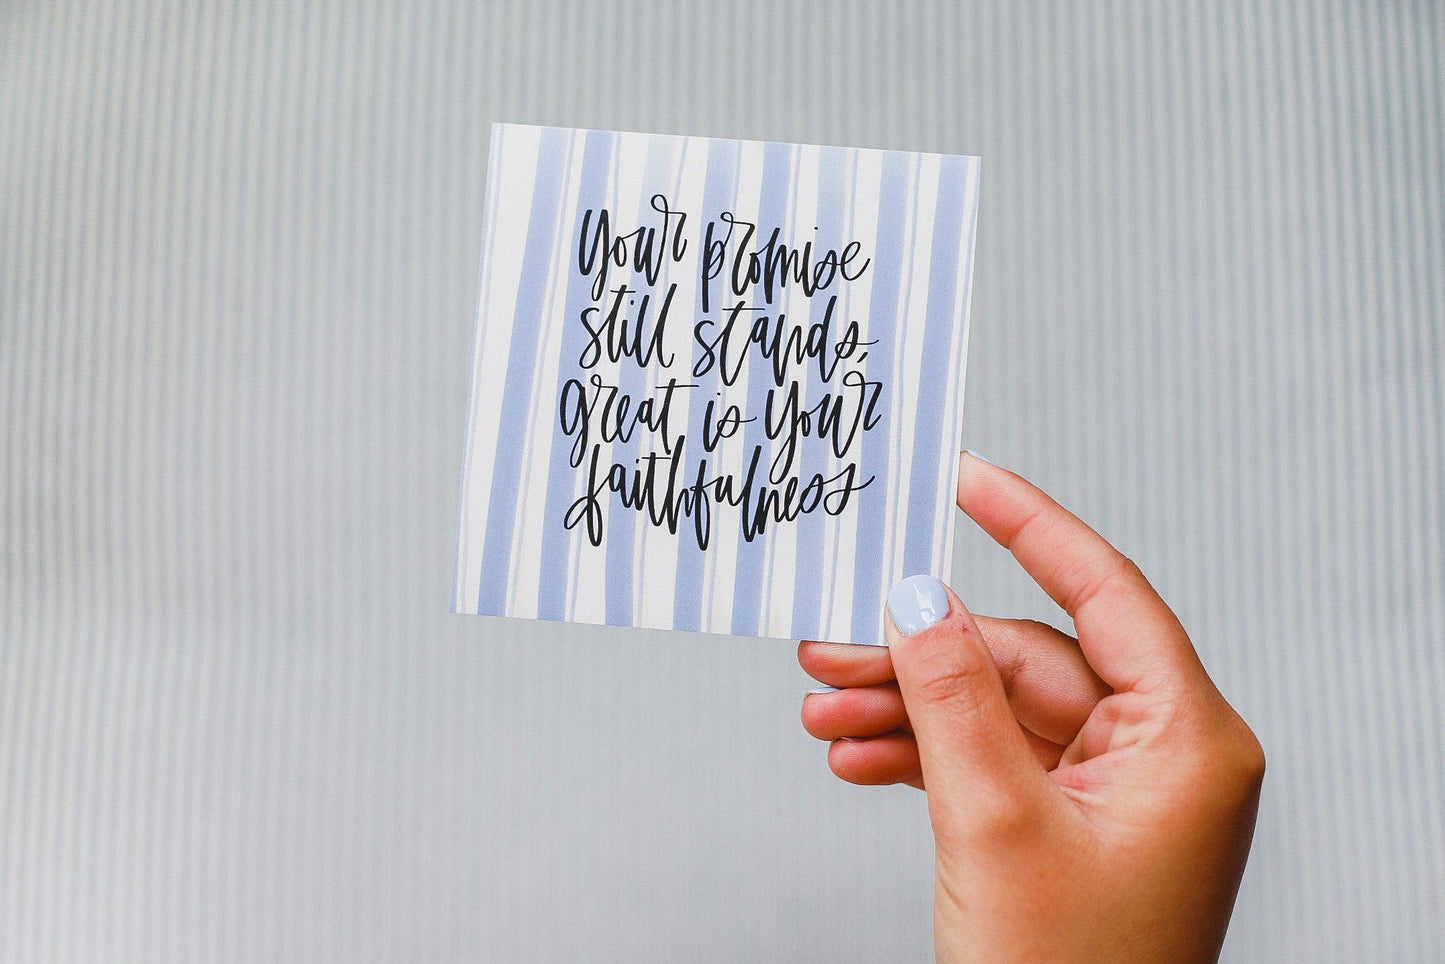 your promise
still stands,
great is your
faithfulness